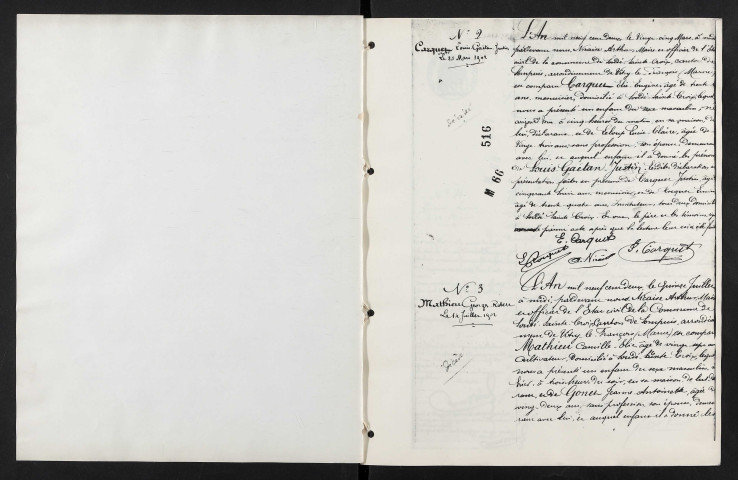 N° 2
Carquet Louis Gaëtan Justin
Le 25 Mars 1902
516
M 66
L'An mil neuf cent deux, le vingt cinq Mars, à
pardevant nous Nicaise Arthur, Maire et officier de l'État
civil de la commune de Soudé Sainte Croix, canton de
Sompuis, arrondissement de Vitry le François, (Marne),
est comparu Carquet Élie Eugène, âgé de trente
ans, manouvrier, domicilié à Soudé Sainte Croix, lequel
nous a présenté un enfant du sexe masculin, né
aujourd'hui à cinq heures du matin en sa maison, de
lui, déclarant, et de Leloup Claire, âgée de
vingt trois ans, sans profession, son épouse, demeurant
avec lui, et auquel enfant il a donné les prénoms
de Louis Gaëtan Justin, lesdites déclaration et
présentation faites en présence de Carquet Justin, âgé
cinquante ans, manouvrier, et de
âgé de trente quatre ans, Instituteur, tous deux domiciliés
à Soudé Sainte Croix. Et ont, le père et les témoins, signé
le présent acte après que la lecture leur en a été faite
E. Carquet
A. Nicaise
J. Carquet
N° 3
Mathieu Georges Robert
Le 14 Juillet 1902
Décédé
L'An mil neuf cent deux, le quinze Juillet
à midi, pardevant nous Nicaise Arthur, Maire
et officier de l'État civil de la Commune de
Soudé Sainte Croix, canton de Sompuis, arrondisse
ment de Vitry le François, (Marne) est comparu
Mathieu Camille Élie âgé de vingt sept ans
cultivateur, domicilié à Soudé Sainte Croix, lequel
nous a présenté un enfant du sexe masculin, né
hier, à trois heures du soir, en sa maison, de lui décla
rant, et de Gonet Jeanne Antoinette, âgée de
vingt deux ans, sans profession, son épouse, demeu
rant avec lui, et auquel enfant il a donné les